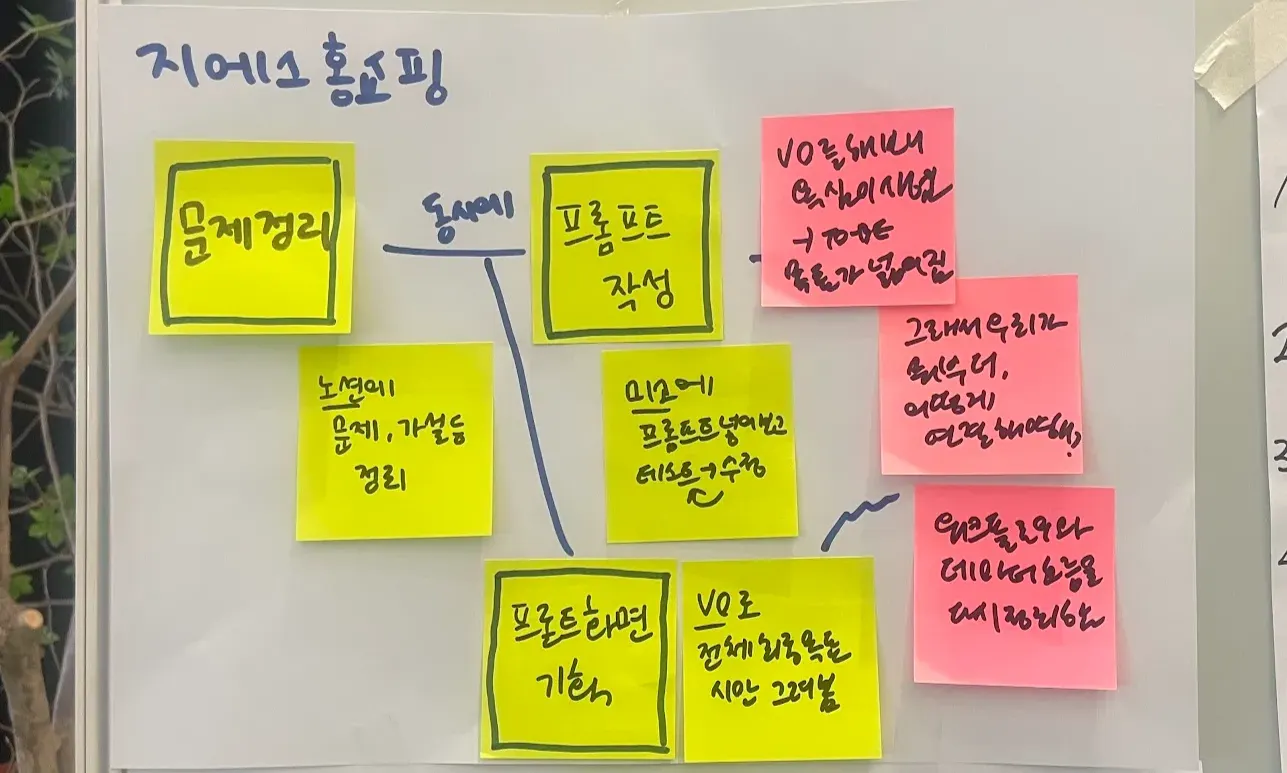 지에스홈쇼핑
문제정리
동시에
프롬프트
작성
V0를 해보며
욕심이 생김
→ TO-BE
가 넓어짐
노션에
문제, 가설등
정리
미소에
프롬프트 넣어보고
테스트 → 수정
그래서 우리가
어떻게
연결해야해?
프론트화면
기획
V0로
전체
시안 그려봄
워크플로우와
데이터 흐름을
다시 정리하는